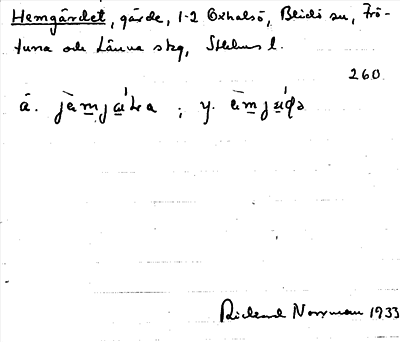 Hemgärdet, gärde, 1-2 Oxhalsö, Blidö sn, Frö-
tuna och Länna skg, Sthlms l.
260
ä.
; y.
Rickard Norrman 1933